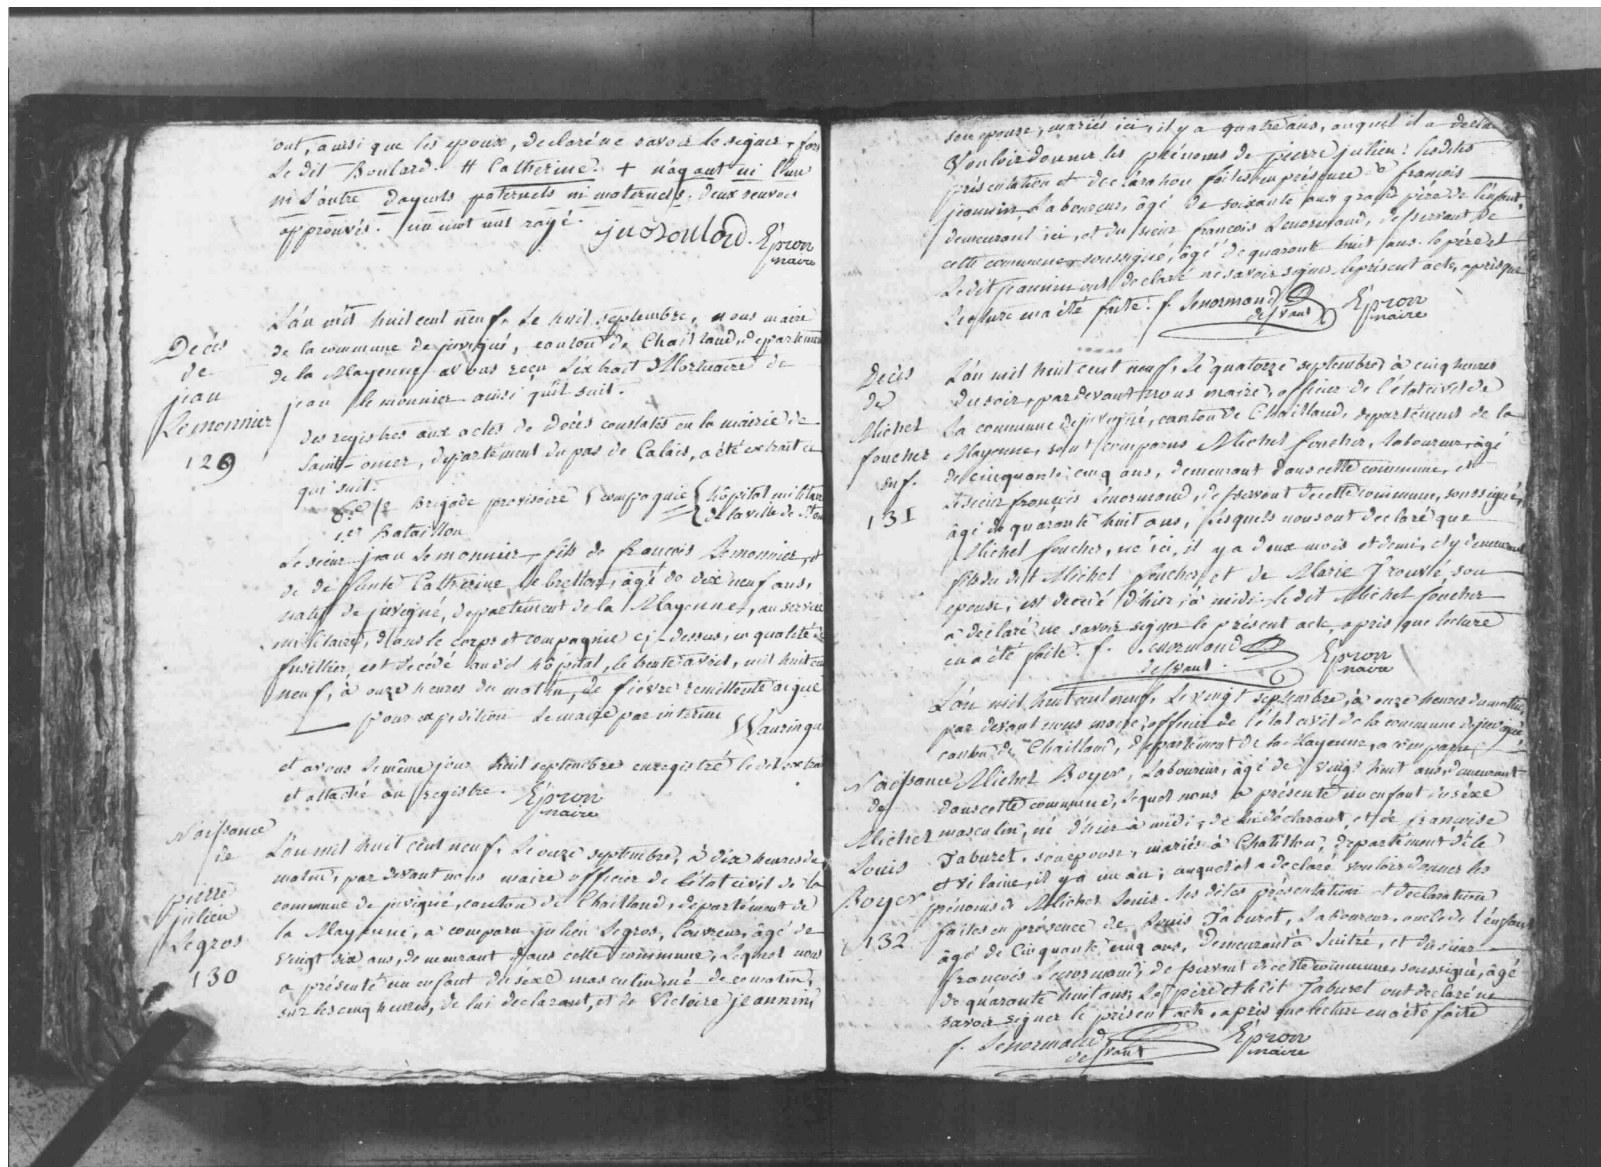 ont, ainsi que les epoux, declaré ne savoir le signer, fors
Le dit Boulard. # Catherine. + n'ayant ni l'un
ni l'autre d'ayeuls paternels ni maternels. deux renvois
approuvés. un mot nul rayé.
Epron
maire
L'an mil huit cent neuf, le huit septembre, nous maire
de la commune de juvigné, canton de Chailland, departement
de la Mayenne avons reçu l'extrait Mortuaire de
jean le monnier ainsi qu'il suit.
Decès
de
jean
Lemonnier
129
des registres aux actes de Décès constatés en la mairie de
Saint-omer, departement du pas de Calais, a été extrait ce
qui suit.
8e 1/2 Brigade provisoire compagnie hôpital militaire
1er Bataillon de la ville de St om
Le sieur jean Lemonnier, fils de françois Lemonnier, et
de defunte Catherine Lebreton, âgé de dix neuf ans,
natif de juvigné, departement de la Mayenne, au service
militaire, dans le corps et compagnie ci-dessus, en qualité de
fusillier, est decedé audit hôpital, le trente avril, mil huit cent
neuf, à onze heures du matin, de fièvre remittente aigue
pour expedition Le maire par interim
Waurinque
et avons le même jour huit septembre enregistré le dit extrait
et attaché au registre. Epron
maire
Naissance
de
pierre
julien
Legros
130
L'an mil huit cent neuf, le onze septembre, à dix heures de
matin, par devant nous maire officier de l'état civil de la
commune de juvigné, canton de Chailland, departement de
la Mayenne, a comparu julien Legros, couvreur, âgé de
vingt six ans, demeurant dans cette commune, Lequel nous
a présenté un enfant du sexe masculin, né de ce matin,
sur les cinq heures, de lui declarant, et de Victoire jeannin,
son epouse, mariés ici, il y a quatre ans, auquel il a declaré
vouloir donner les prénoms de pierre julien: lesdites
présentation et declaration faites en présence de françois
jeannin Laboureur, âgé de soixante ans grand père de l'enfant,
demeurant ici, et du sieur françois Lenormand, desservant de
cette commune soussigné, âgé de quarante huit ans. le père et
Ledit jeannin ont declaré ne savoir signer le présent acte, après que
Lecture en a été faite. f. Lenormand Epron
desvant maire
Decès
de
Michel
foucher
enf.
131
L'an mil huit cent neuf, le quatorze septembre, à cinq heures
du soir, par devant nous maire, officier de l'état civil de
La commune de juvigné, canton de Chailland, departement de la
Mayenne, sont comparus Michel foucher, laboureur, âgé
de cinquante cinq ans, demeurant dans cette commune, et
Le sieur françois Lenormand, desservant de cette commune, soussigné,
âgé de quarante huit ans, lesquels nous ont declaré que
Michel foucher, né ici, il y a deux mois et demi, et y demeurant
fils du dit Michel foucher et de Marie Trouvé, son
epouse, est decedé d'hier, à midi. le dit Michel foucher
a déclaré ne savoir signer le présent acte, après que lecture
en a été faite. f. Lenormand Epron
desvant. maire
L'an mil huit cent neuf, le vingt septembre, à onze heures du matin,
par devant nous maire, officier de l'état civil de la commune de juvigné,
canton de Chailland, departement de la Mayenne, a comparu
Naissance
de
Michel
Louis
Boyer
132
Michel Boyer, Laboureur, âgé de vingt huit ans demeurant
dans cette commune, Lequel nous a présenté un enfant du sexe
masculin, né d'hier à midi, de lui déclarant, et de françoise
Taburet, son epouse, mariés à Chatillon, departement d'Ille
et vilaine, il y a un an, auquel il a declaré vouloir donner les
prénoms de Michel Louis. les dites présentation et declaration
faites en présence de Louis Taburet, Laboureur, oncle de l'enfant
âgé de Cinquante cinq ans, demeurant à luitré, et du sieur
françois Lenormand, desservant de cette commune, soussigné, âgé
de quarante huit ans; Le père et le dit Taburet ont declaré ne
savoir signer le présent acte, après que lecture en a été faite
f. Lenormand Epron
desvant maire